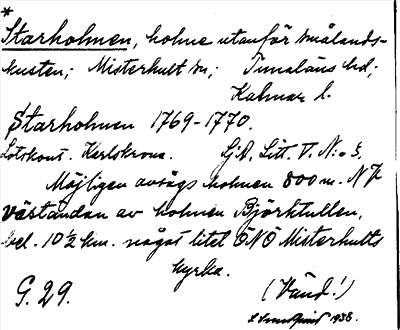 *
Starholmen, holme utanför Smålands-
kusten; Misterhult sn; Tunaläns hd;
Kalmar l.
Starholmen 1769-1770.
Lotskont. Karlskrona. SjA, Litt. V. N:o 3.
Möjligen avsågs holmen 800 m. NV
västandan av holmen Björktullen,
bel. 10 1/2 km. något litet ÖNÖ Misterhults
kyrka.
G. 29. (Vänd!)
1938.